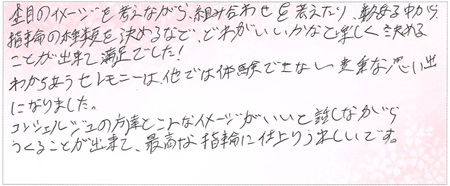 全員のイメージを考えながら、組み合わせを考えたり、数ある中から
指輪の種類を決めるなどで、どれがいいかなと楽しく決める
ことが出来て満足でした！
わかちあうセレモニーは、他では体験できない貴重な思い出
になりました。
コンシェルジュの方達とこんなイメージがいいと話しながら
つくることが出来て、最高な指輪に仕上りうれしいです。